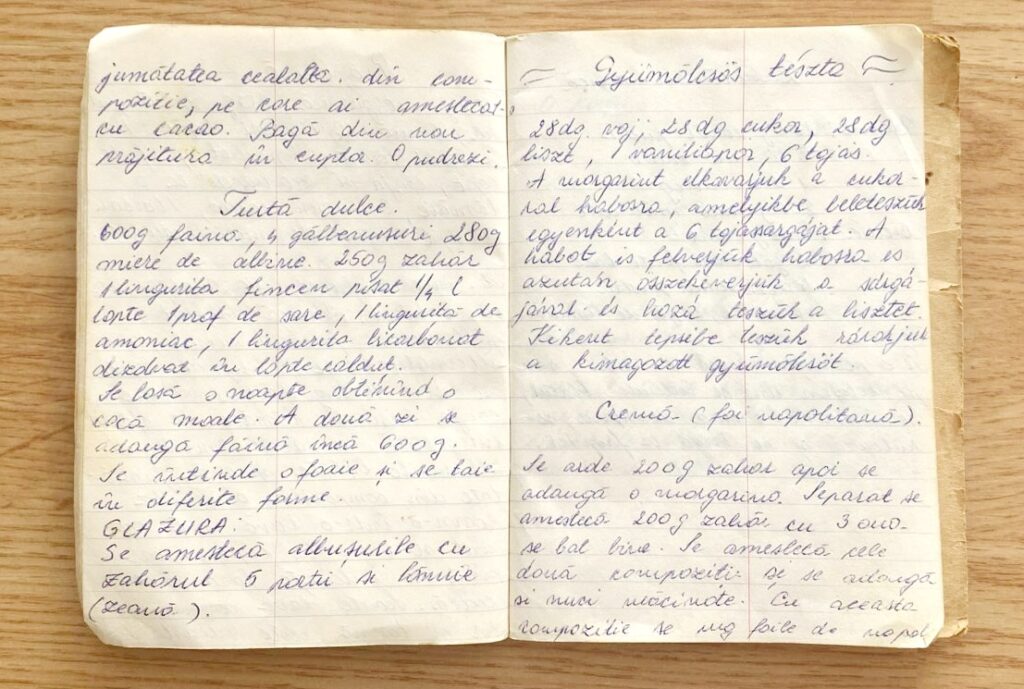 jumătatea cealaltă. din com-
poziție, pe care ai amestecat-
cu cacao. Bagă din nou
prăjitura în cuptor. O pudrezi.
Turtă dulce.
600g faină, 4 gălbenusuri 280g
miere de albine. 250g zahăr
1 lingurita fincen pisat 1/4 l
lapte 1 praf de sare, 1 lingurită de
amoniac, 1 lingurita bicarbonat
dizolvat în lapte căldut.
Se lasă o noapte obtinînd o
cocă moale. A doua zi se
adaugă făină încă 600g.
Se întinde o foaie si se taie
în diferite forme.
GLAZURA:
Se amestecă albusurile cu
zahărul 5 părti si lămîie
(zeamă).
Gyümölcsös tészta
28dg. vaj, 28 dg cukor, 28dg
liszt, 1 vaniliapor, 6 tojás.
A margarint elkavarjuk a cukor-
ral habosra, amelyikbe beletesszük
egyenként a 6 tojássárgáját. A
habot is felverjük habosra és
azután összekeverjük a sárgá-
jával és hozá teszük a lisztet.
Kikent tepsibe teszük rárakjuk
a kimagozott gyümölcsöt.
Cremă - (foi napolitană).
Se arde 200g zahăr apoi se
adaugă o margarină. Separat se
amestecă 200g zahăr cu 3 ouă-
se bat bine. Se amestecă cele
două compoziti- si se adaugă
si nuci măcinate. Cu aceasta
compozitie se ung foile de napol